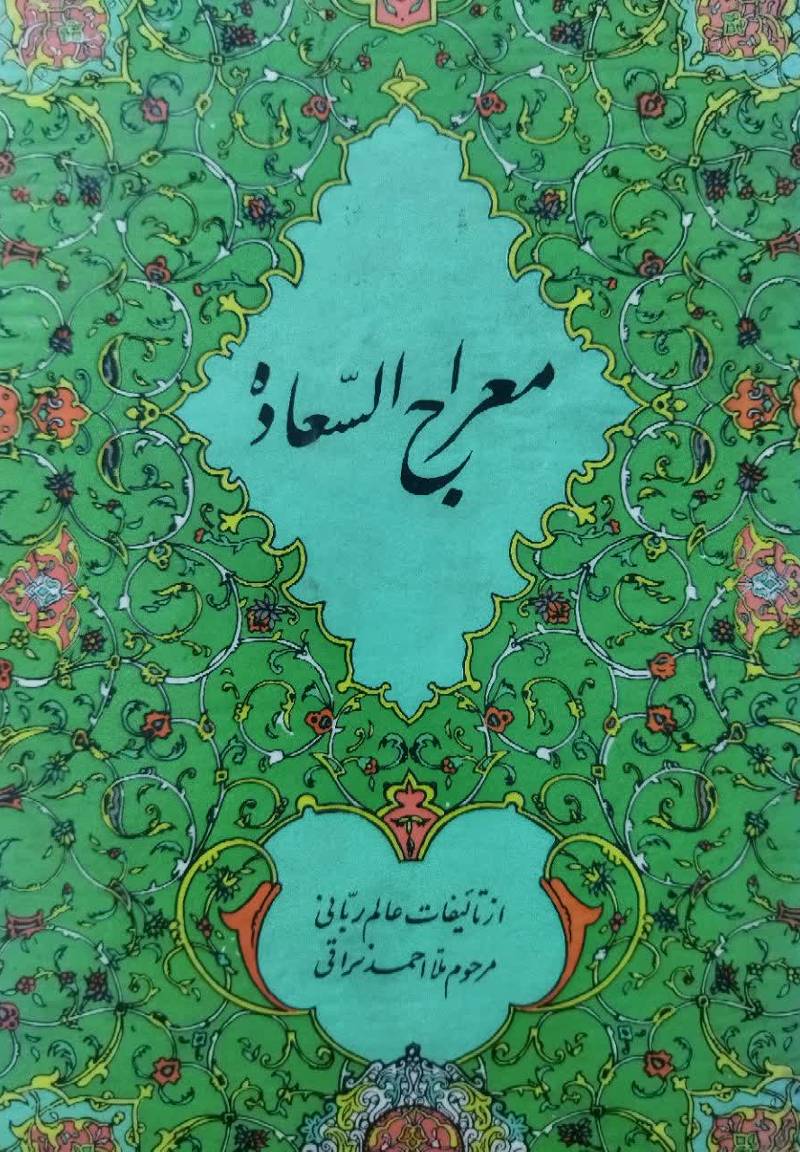 معراج السّعاده
از تألیفات عالم ربّانی
مرحوم ملّا احمد نراقی